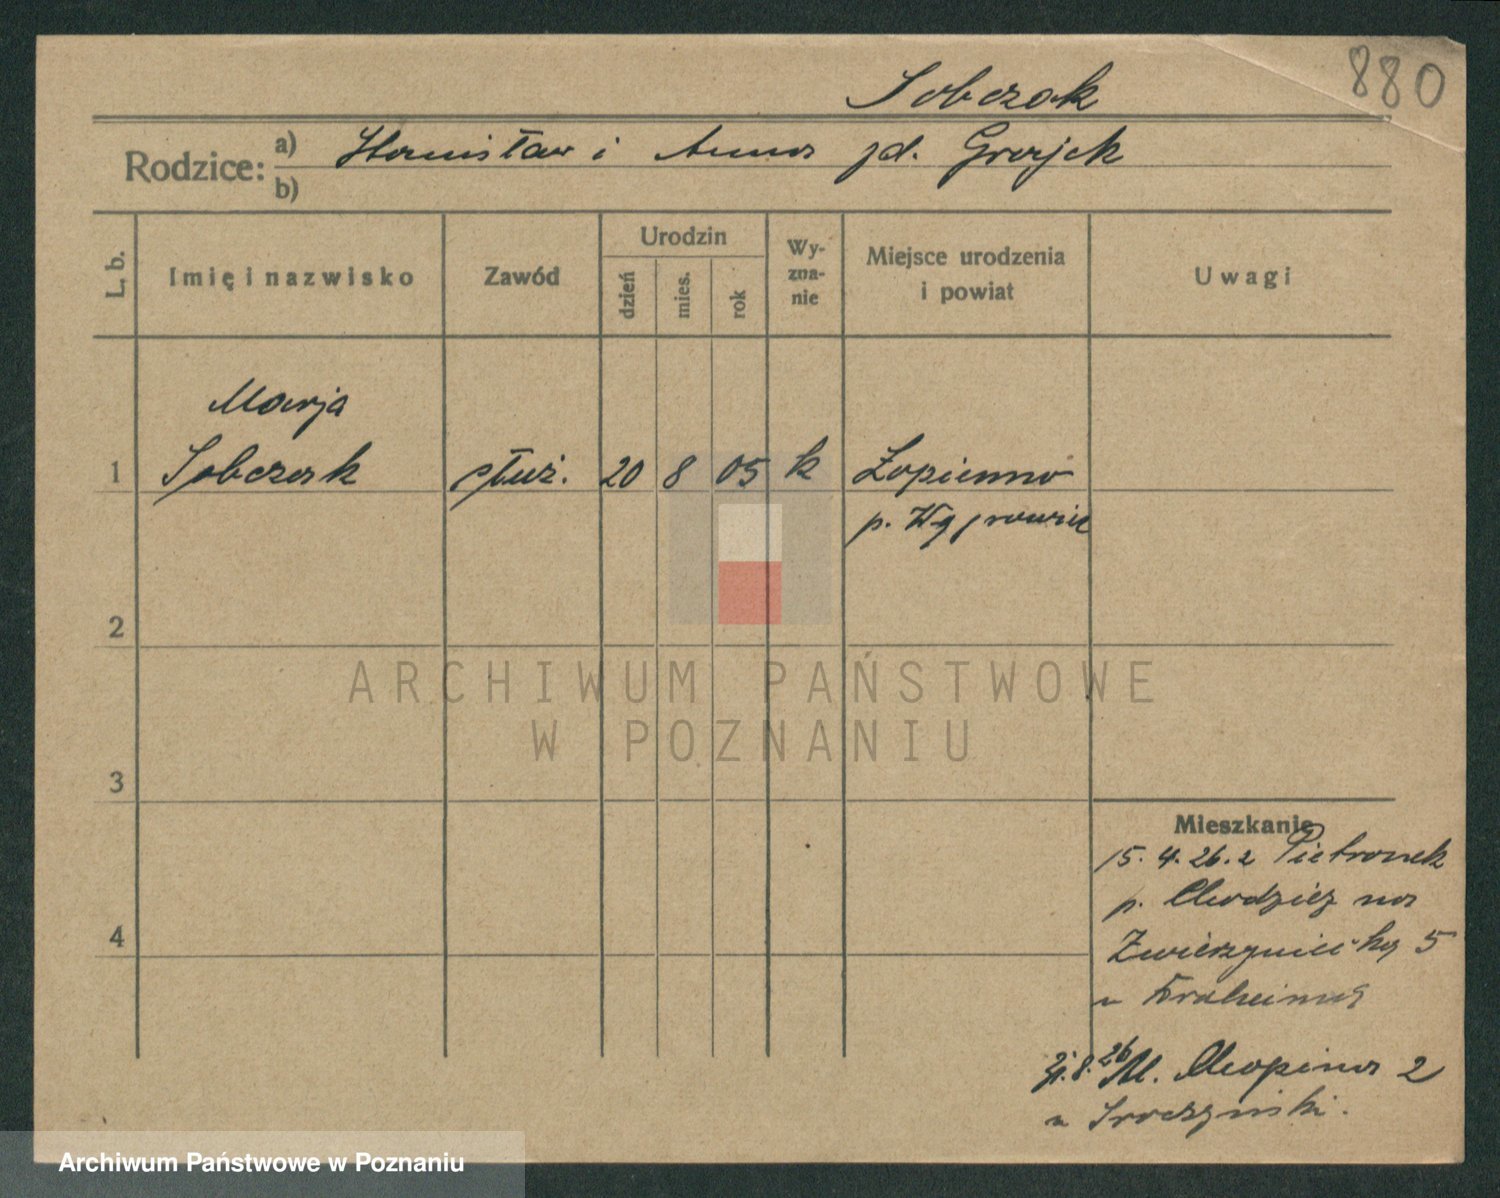 880
Sobczak
Rodzice: a) Stanisław i Anna zd. Grajek
b)
L. b. Imię i nazwisko Zawód Urodzin dzień mies. rok Wyzna-nie Miejsce urodzenia i powiat Uwagi
Marja
1 Sobczak służ. 20 8 05 k Łopienno
p. Wągrowiec
2
ARCHIWUM PAŃSTWOWE
W POZNANIU
3
Mieszkanie
15. 4. 26. z Pietronek
p. Chodzież na
4
Zwierzyniecką 5
u
8. 26 Al. Chopina 2
u
Archiwum Państwowe w Poznaniu